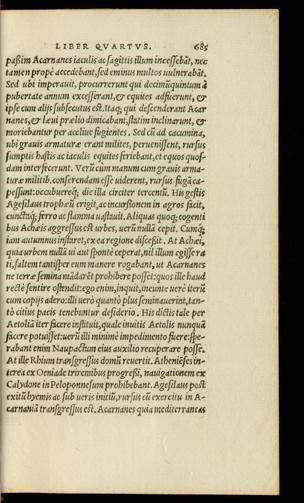 LIBER QVARTVS. 685
passim Acarnanes iaculis ac sagittis illum incessebāt, nec
tamen propè accedebant, sed eminus multos uulnerabāt.
Sed ubi imperauit, procurrerunt qui decimūquintum à
pubertate annum excesserant, & equites adfuerunt, &
ipse cum alijs subsecutus est. Itaq; qui descenderant Acar
nanes, & leui prælio dimicabant, statim inclinarunt, &
moriebantur per accliue fugientes. Sed cū ad cacumina,
ubi grauis armaturæ erant milites, peruenissent, rursus
sumptis hastis ac iaculis equites feriebant, et equos quos-
dam interfecerunt. Verū cùm manum cum grauis arma-
turæ militib. conserendam esse uiderent, rursus fugā ca-
pessunt: occubuereq́; die illa circiter trecentū. His gestis
Agesilaus trophæū erigit, ac incursionem in agros facit,
cunctaq́; ferro ac flamma uastauit. Aliquas quoq; cogenti
bus Achæis aggressus est urbes, uerū nullā cepit. Cumq́;
iam autumnus instaret, ex ea regione discessit. At Achæi,
quia urbem nullā ui aut sponte ceperat, nil illum egisse ra
ti, saltem tantisper eum manere rogabant, ut Acarnanes
ne terræ semina mādarēt prohibere posset: quos ille haud
rectè sentire ostendit: ego enim, inquit, ineunte uere iterū
cum copijs adero: illi uerò quantò plus seminauerint, tan-
tò citius pacis tenebuntur desiderio. His dictis tale per
Aetoliā iter facere instituit, quale inuitis Aetolis nunquā
facere potuisset: uerū illi minimè impedimento fuere: spe-
rabant enim Naupactum eius auxilio recuperare posse.
At ille Rhium transgressus domū reuertit. Atheniēses in-
terea ex Oeniade triremibus progressi, nauigationem ex
Calydone in Peloponnesum prohibebant. Agesilaus post
exitū hyemis ac sub ueris initiū, rursus cū exercitu in A-
carnaniā transgressus est. Acarnanes quia mediterraneas